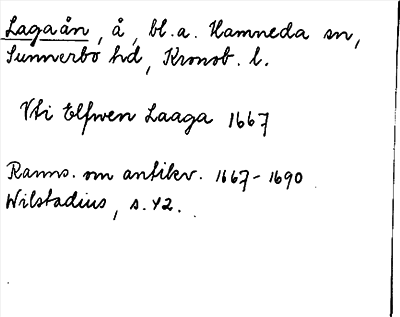 Lagaån, å, bl.a. Hamneda sn,
Sunnerbo hd, Kronob. l.
Vti Elfwen Laaga 1667
Ranns. om antikv. 1667-1690
Wilstadius, s. 42.